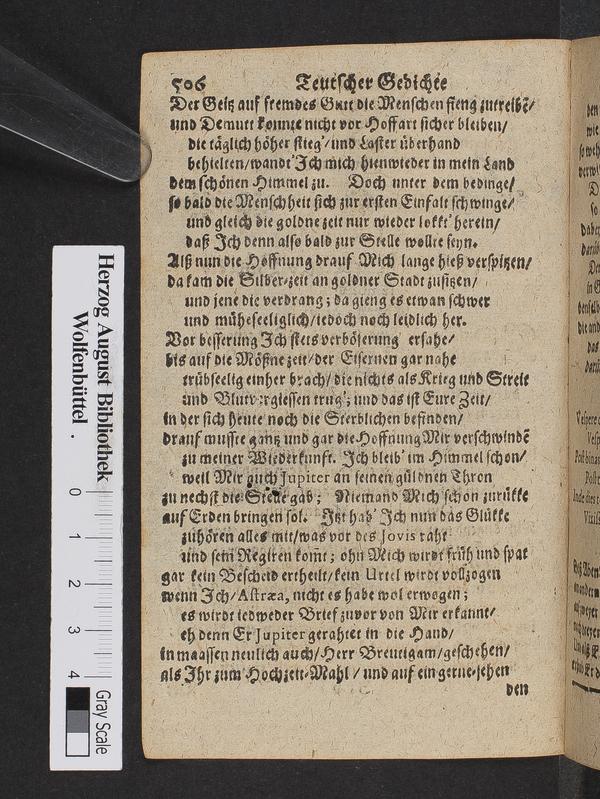 506 Teutscher Gedichte
Der Geitz auf fremdes Gutt die Menschen fieng zutreibē/
und Demutt konnte nicht vor Hoffart sicher bleiben/
die täglich höher stieg'/und Laster überhand
behielten/wandt' Ich mich hienwieder in mein Land
dem schönen Himmel zu. Doch unter dem bedinge/
so bald die Menschheit sich zur ersten Einfalt schwinge/
und gleich die goldne zeit nur wieder lokkt' herein/
daß Ich denn also bald zur Stelle wollte seyn.
Alß nun die Hoffnung drauf Mich lange hieß verspitzen/
da kam die Silber-zeit an goldner Stadt zusitzen/
und jene die verdrang; da gieng es etwan schwer
und müheseeliglich/iedoch noch leidlich her.
Vor besserung Ich stets verböserung ersahe/
bis auf die Mößne zeit/der Eisernen gar nahe
trübseelig einher brach/die nichts als Krieg und Streit
und Blutvergiessen trug'; und das ist Eure Zeit/
in der sich heute noch die Sterblichen befinden/
drauf musste gantz und gar die Hoffnung Mir verschwindē
zu meiner Wiederkunft. Ich bleib' im Himmel schon/
weil Mir auch Jupiter an seinen güldnen Thron
zu nechst die Stelle gab; Niemand Mich schon zurükke
auf Erden bringen sol. Itzt hab' Ich nun das Glükke
zuhören alles mit/was vor des Jovis raht
und sein Regiren kom̃t; ohn Mich wirdt früh und spat
gar kein Bescheid ertheilt/kein Urtel wirdt vollzogen
wenn Ich/Astræa, nicht es habe wol erwogen;
es wirdt iedweder Brief zuvor von Mir erkannt/
eh denn Er Jupiter gerahtet in die Hand/
in maassen neulich auch/Herr Breutigam/geschehen/
als Ihr zum Hochzeit-Mahl/und auf ein gerne-sehen
den
Herzog August Bibliothek
Wolfenbüttel
0 1 2 3 4
Gray Scale